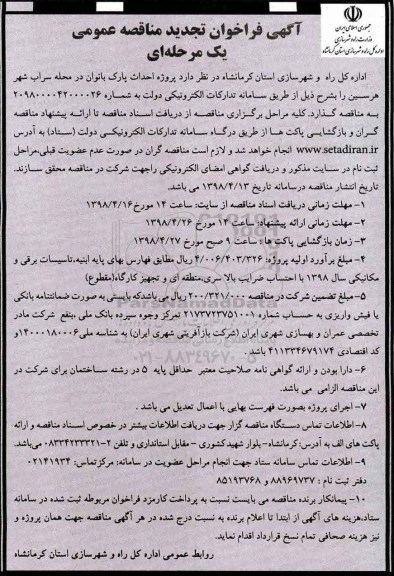 جمهوری اسلامی ایران
وزارت راه و شهرسازی
اداره کل راه و شهرسازی استان کرمانشاه
آگهی فراخوان تجدید مناقصه عمومی
یک مرحله‌ای
اداره کل راه و شهرسازی استان کرمانشاه در نظر دارد پروژه احداث پارک بانوان در محله سراب شهر
هرسین را بشرح ذیل از طریق سامانه تدارکات الکترونیکی دولت به شماره ۲۰۹۸۰۰۰۰۴۲۰۰۰۰۲۶
به مناقصه گذارد. کلیه مراحل برگزاری مناقصه از دریافت اسناد مناقصه تا ارائه پیشنهاد مناقصه
گران و بازگشایی پاکت ها از طریق درگاه سامانه تدارکات الکترونیکی دولت (ستاد) به آدرس
www.setadiran.ir انجام خواهد شد و لازم است مناقصه گران در صورت عدم عضویت قبلی،مراحل
ثبت نام در سایت مذکور و دریافت گواهی امضای الکترونیکی راجهت شرکت در مناقصه محقق سازند.
تاریخ انتشار مناقصه درسامانه تاریخ ۱۳۹۸/۴/۱۳ می باشد.
۱- مهلت زمانی دریافت اسناد مناقصه از سایت: ساعت ۱۴ مورخ۱۳۹۸/۴/۱۶
۲- مهلت زمانی ارائه پیشنهاد: ساعت ۱۴ مورخ ۱۳۹۸/۴/۲۶
۳- زمان بازگشایی پاکت ها: ساعت ۹ صبح مورخ ۱۳۹۸/۴/۲۷
۴- مبلغ برآورد اولیه پروژه: ۴/۰۰۶/۴۰۳/۳۲۶ ریال مطابق فهارس بهای پایه ابنیه،تاسیسات برقی و
مکانیکی سال ۱۳۹۸ با احتساب ضرایب بالا سری،منطقه ای و تجهیز کارگاه(مقطوع)
۵- مبلغ تضمین شرکت در مناقصه ۲۰۰/۳۲۱/۰۰۰ ریال می باشدکه بایستی به صورت ضمانتنامه بانکی
یا فیش واریزی به حساب شماره ۲۱۷۳۷۲۳۷۵۱۰۰۱ تمرکز وجوه سپرده بانک ملی بنفع شرکت مادر
تخصصی عمران و بهسازی شهری ایران (شرکت بازآفرینی شهری ایران) به شناسه ملی۱۴۰۰۰۱۸۰۰۰۶و
کد اقتصادی ۴۱۱۳۳۴۶۷۹۱۷۴ باشد.
۶- دارا بودن و ارائه گواهی نامه صلاحیت معتبر حداقل پایه ۵ در رشته ساختمان برای شرکت در
این مناقصه الزامی می باشد.
۷- اجرای پروژه بصورت فهرست بهایی با اعمال تعدیل می باشد .
۸-اطلاعات تماس دستگاه مناقصه گزار جهت دریافت اطلاعات بیشتر در خصوص اسناد مناقصه و ارائه
پاکت های الف به آدرس: کرمانشاه- بلوار شهیدکشوری - مقابل استانداری و تلفن ۲-۰۸۳۳۴۲۳۳۳۲۱ می‌باشد.
۹- اطلاعات تماس سامانه ستاد جهت انجام مراحل عضویت در سامانه: مرکزتماس: ۰۲۱۴۱۹۳۴
دفتر ثبت نام : ۸۸۹۶۹۷۳۷ و ۸۵۱۹۳۷۶۸
۱۰- پیمانکار برنده مناقصه می بایست نسبت به پرداخت کارمزد فراخوان مربوطه ثبت شده در سامانه
ستاد،هزینه های آگهی از ابتدا تا اعلام برنده به نسبت درج شده در هر آگهی مناقصه جهت همان پروژه و
نیز هزینه صحافی تمام نسخ قرارداد اقدام نماید.
روابط عمومی اداره کل راه و شهرسازی استان کرمانشاه